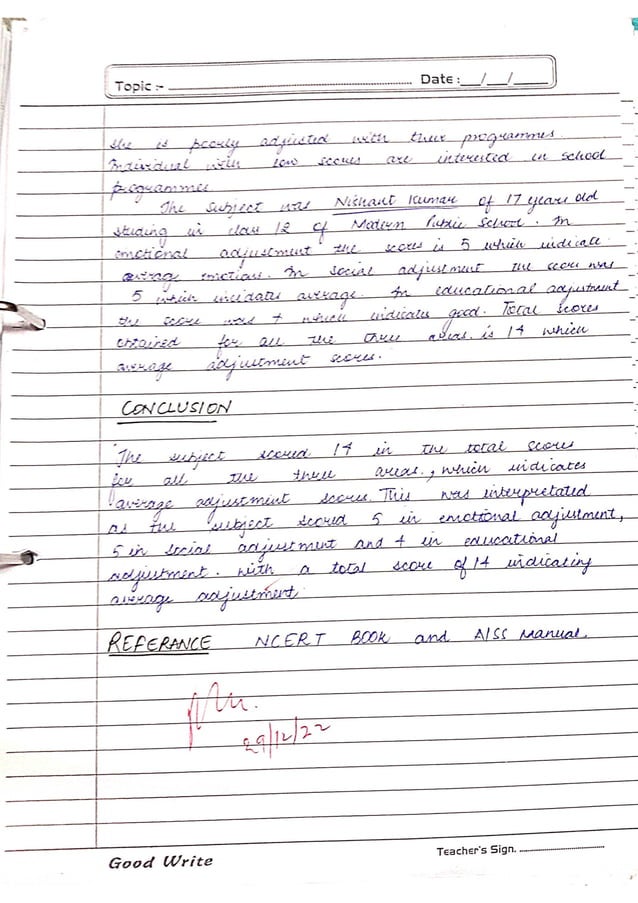 Topic :- Date :__/__/____
she is poorly adjusted with their programmes.
Individual with low scores are interested in school
programmes
The subject was Nishant Kumar of 17 years old
studing in class 12 of Modern Public School. In
emotional adjustment the scores is 5 which indicate
average emotions. In social adjustment the score was
5 which incidates average. In educational adjustment
the score was 4 which indicates good. Total scores
obtained for all the three areas. is 14 which
average adjustment scores.
CONCLUSION
The subject scored 14 in the total scores
for all the three areas., which indicates
average adjustment scores. This was interpretated
as the subject scored 5 in emotional adjustment,
5 in social adjustment and 4 in educational
adjustment. with a total score of 14 indicating
average adjustment
REFERANCE NCERT BOOK and AISS Manual.
29/12/22
Good Write Teacher's Sign.